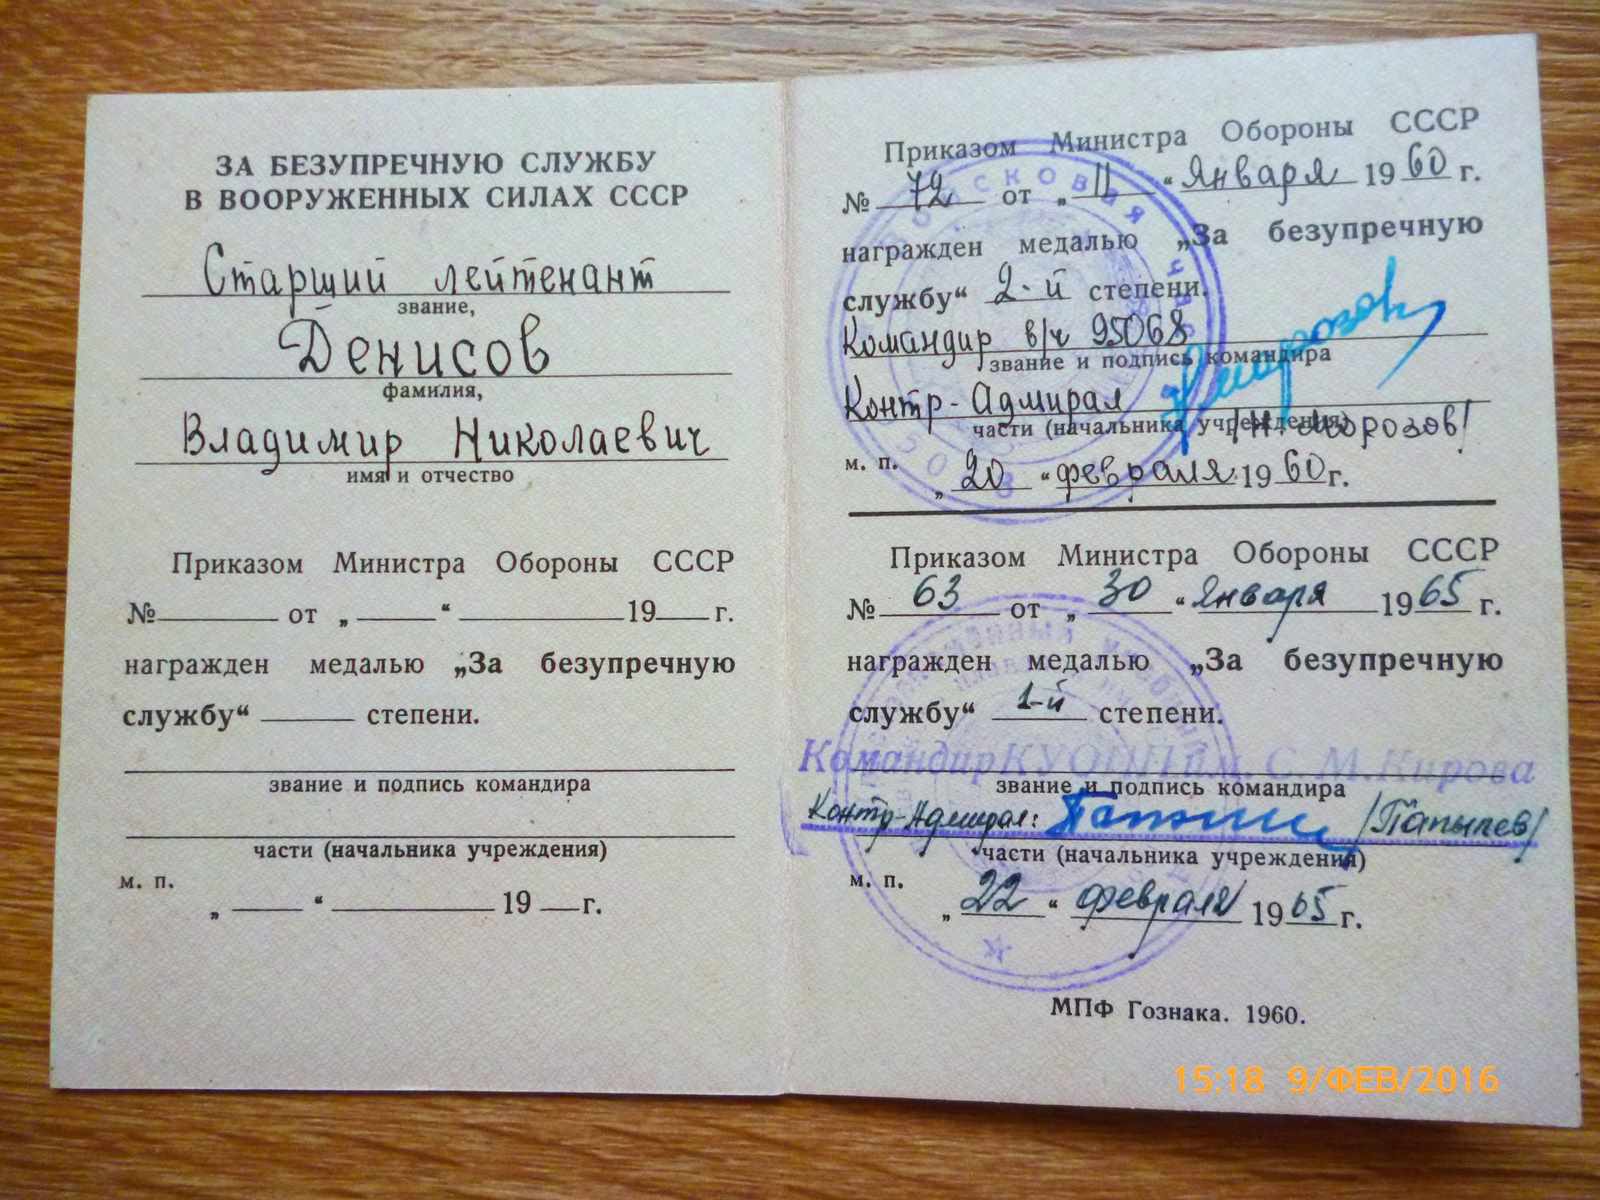 ЗА БЕЗУПРЕЧНУЮ СЛУЖБУ
В ВООРУЖЕННЫХ СИЛАХ СССР
Старший лейтенант
звание,
Денисов
фамилия,
Владимир Николаевич
имя и отчество
Приказом Министра Обороны СССР
№ от „ “ 19 г.
награжден медалью „За безупречную
службу“ степени.
звание и подпись командира
части (начальника учреждения)
м. п.
„ “ 19 г.
Приказом Министра Обороны СССР
№ 72 от „ 11 “ Января 1960 г.
награжден медалью „За безупречную
службу“ 2-й степени.
Командир в/ч 95068
звание и подпись командира
Контр-Адмирал /Н. Морозов/
части (начальника учреждения)
м. п.
„ 20 “ февраля 1960 г.
Приказом Министра Обороны СССР
№ 63 от „ 30 “ Января 1965 г.
награжден медалью „За безупречную
службу“ 1-й степени.
Командир КУОПП им. С. М. Кирова
звание и подпись командира
Контр-Адмирал: /Папылев/
части (начальника учреждения)
м. п.
„ 22 “ февраля 1965 г.
МПФ Гознака. 1960.
15:18 9/ФЕВ/2016